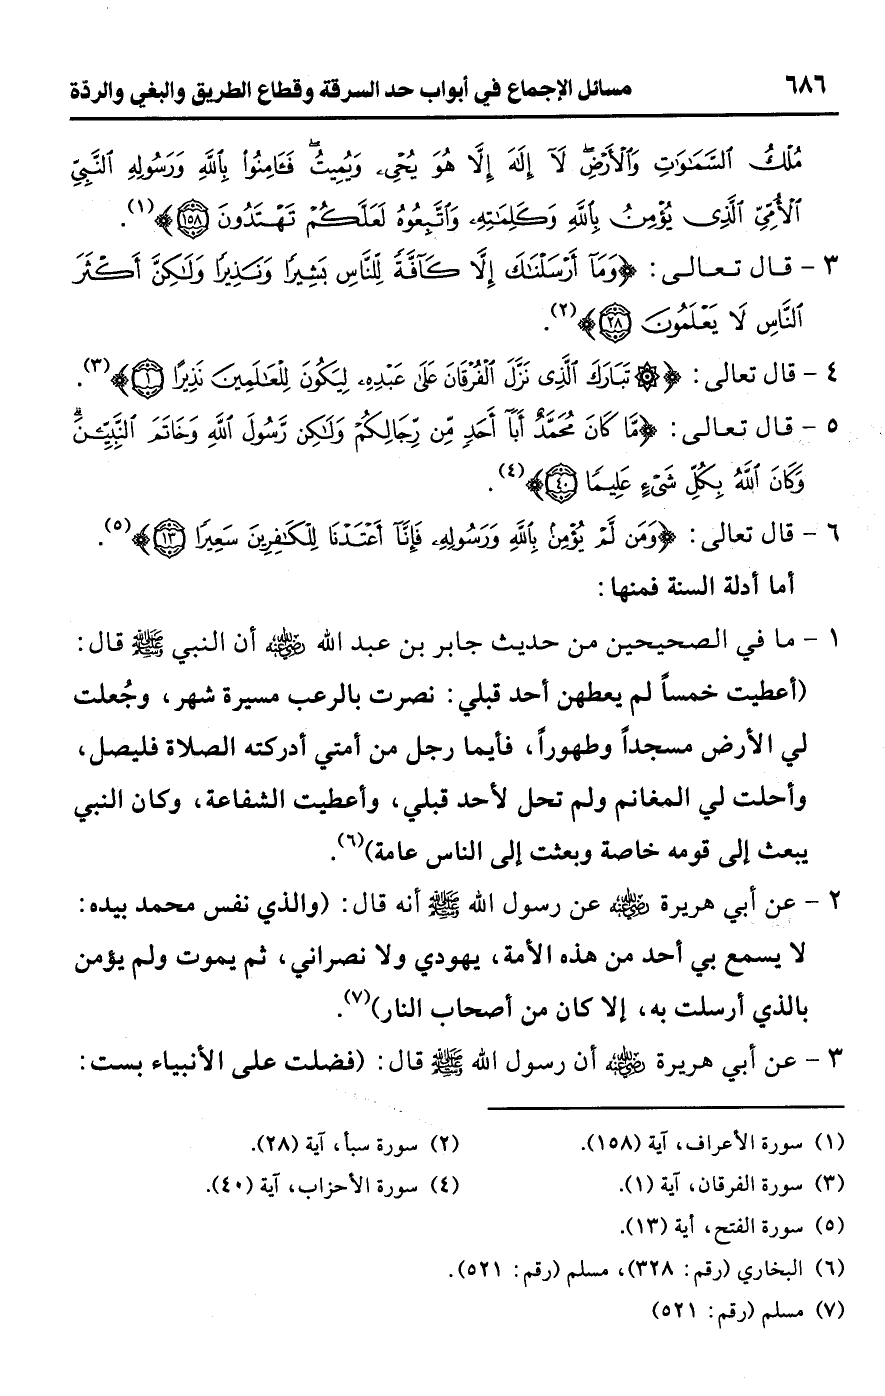 ٦٨٦ مسائل الإجماع في أبواب حد السرقة وقطاع الطريق والبغي والردّة
مُلْكُ السَّمَٰوَٰتِ وَٱلْأَرْضِۖ لَآ إِلَٰهَ إِلَّا هُوَ يُحْىِۦ وَيُمِيتُۖ فَـَٔامِنُوا۟ بِٱللَّهِ وَرَسُولِهِ ٱلنَّبِىِّ
ٱلْأُمِّىِّ ٱلَّذِى يُؤْمِنُ بِٱللَّهِ وَكَلِمَٰتِهِۦ وَٱتَّبِعُوهُ لَعَلَّكُمْ تَهْتَدُونَ ١٥٨﴾(١).
٣ - قال تعالى: ﴿وَمَآ أَرْسَلْنَٰكَ إِلَّا كَآفَّةً لِّلنَّاسِ بَشِيرًا وَنَذِيرًا وَلَٰكِنَّ أَكْثَرَ
ٱلنَّاسِ لَا يَعْلَمُونَ ٢٨﴾(٢).
٤ - قال تعالى: ﴿۞ تَبَارَكَ ٱلَّذِى نَزَّلَ ٱلْفُرْقَانَ عَلَىٰ عَبْدِهِۦ لِيَكُونَ لِلْعَٰلَمِينَ نَذِيرًا ١﴾(٣).
٥ - قال تعالى: ﴿مَّا كَانَ مُحَمَّدٌ أَبَآ أَحَدٍ مِّن رِّجَالِكُمْ وَلَٰكِن رَّسُولَ ٱللَّهِ وَخَاتَمَ ٱلنَّبِيِّـۧنَۗ
وَكَانَ ٱللَّهُ بِكُلِّ شَىْءٍ عَلِيمًا ٤٠﴾(٤).
٦ - قال تعالى: ﴿وَمَن لَّمْ يُؤْمِنۢ بِٱللَّهِ وَرَسُولِهِۦ فَإِنَّآ أَعْتَدْنَا لِلْكَٰفِرِينَ سَعِيرًا ١٣﴾(٥).
أما أدلة السنة فمنها:
١ - ما في الصحيحين من حديث جابر بن عبد الله رضي الله عنه أن النبي ﷺ قال:
(أعطيت خمساً لم يعطهن أحد قبلي: نصرت بالرعب مسيرة شهر، وجُعلت
لي الأرض مسجداً وطهوراً، فأيما رجل من أمتي أدركته الصلاة فليصل،
وأحلت لي المغانم ولم تحل لأحد قبلي، وأعطيت الشفاعة، وكان النبي
يبعث إلى قومه خاصة وبعثت إلى الناس عامة)(٦).
٢ - عن أبي هريرة رضي الله عنه عن رسول الله ﷺ أنه قال: (والذي نفس محمد بيده:
لا يسمع بي أحد من هذه الأمة، يهودي ولا نصراني، ثم يموت ولم يؤمن
بالذي أرسلت به، إلا كان من أصحاب النار)(٧).
٣ - عن أبي هريرة رضي الله عنه أن رسول الله ﷺ قال: (فضلت على الأنبياء بست:
(١) سورة الأعراف، آية (١٥٨). (٢) سورة سبأ، آية (٢٨).
(٣) سورة الفرقان، آية (١). (٤) سورة الأحزاب، آية (٤٠).
(٥) سورة الفتح، أية (١٣).
(٦) البخاري (رقم: ٣٢٨)، مسلم (رقم: ٥٢١).
(٧) مسلم (رقم: ٥٢١)